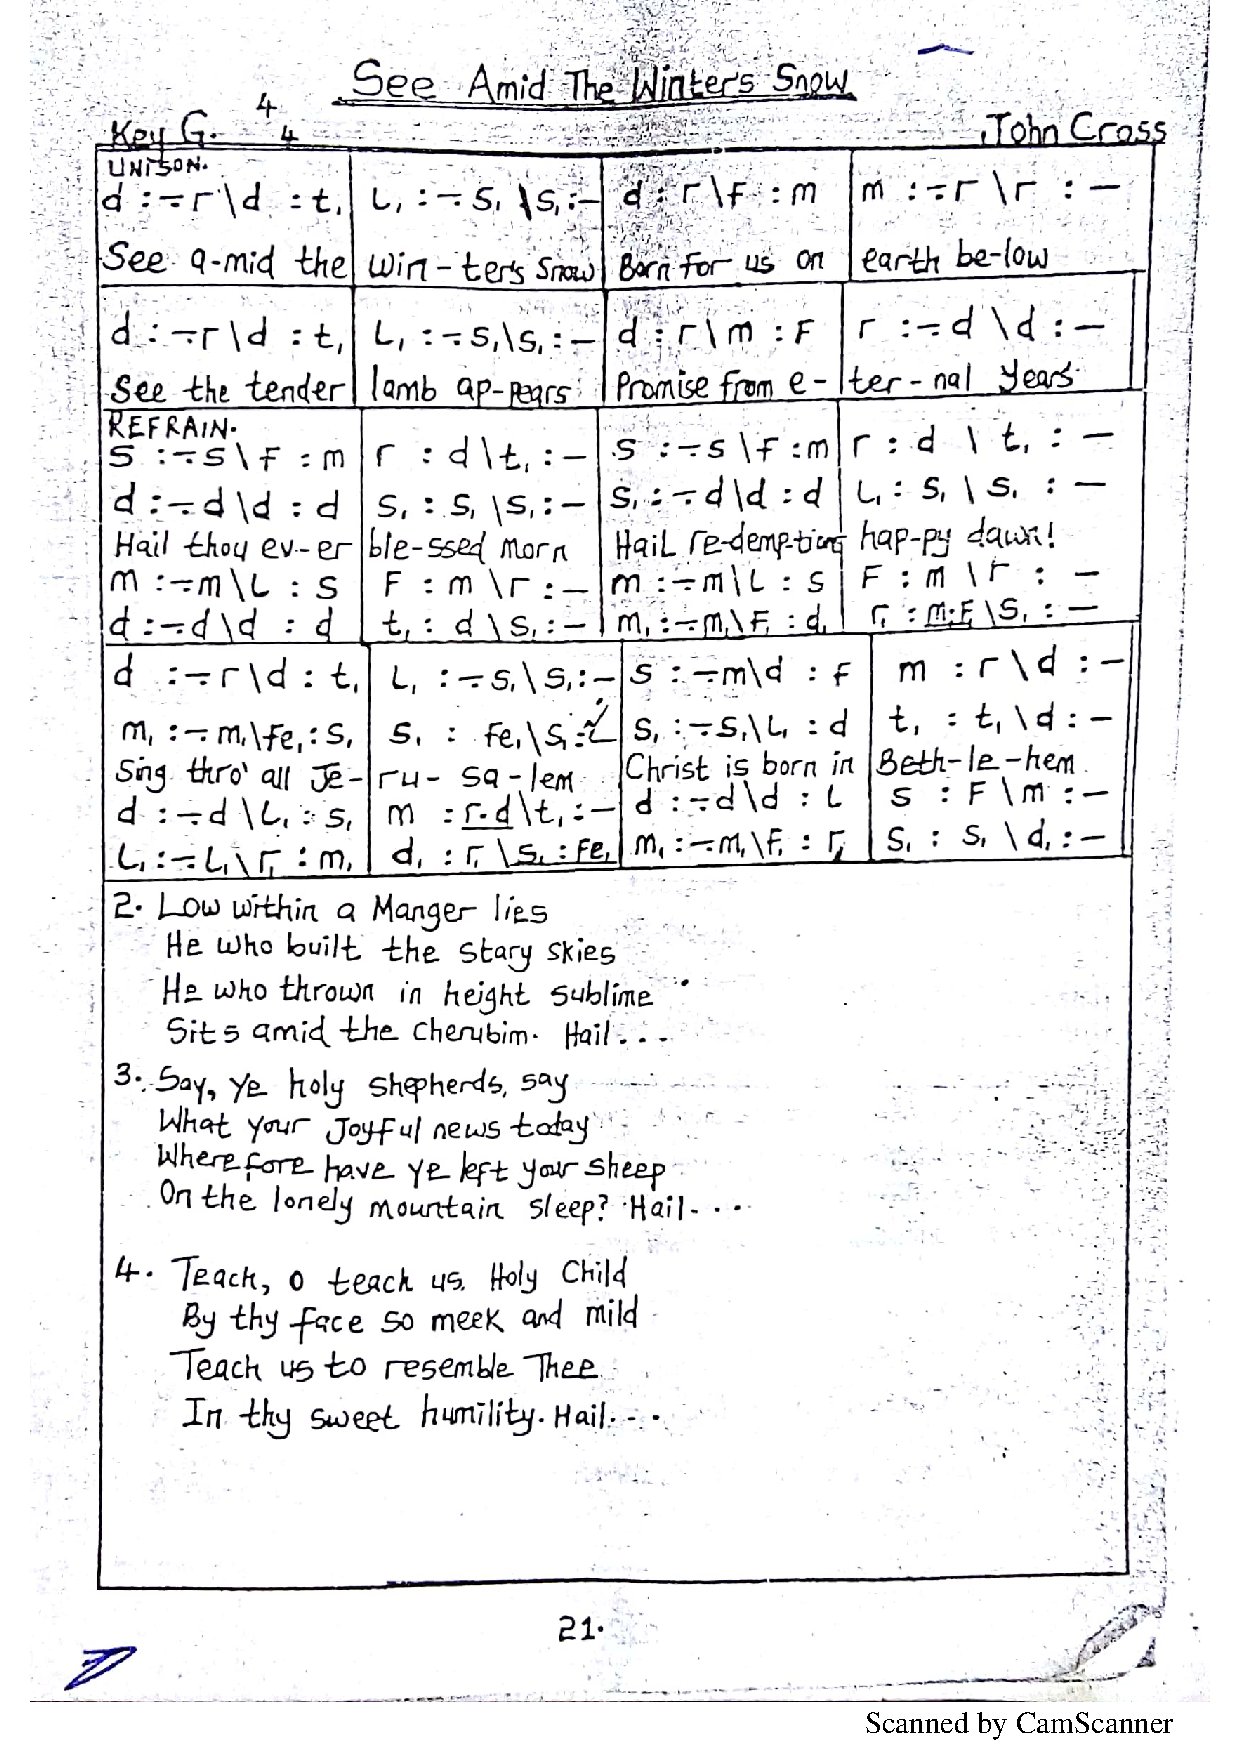 See Amid The Winter's Snow
Key G. 4/4 John Cross
UNISON.
d :-.r \ d : t, | L, :-.s, \ s, :- | d : r \ f : m | m :-.r \ r : -
See a-mid the | Win-ter's Snow | Born for us on | earth be-low
d :-.r \ d : t, | L, :-.s, \ s, :- | d : r \ m : F | r :-.d \ d : -
See the tender | lamb ap-pears | Promise from e- | ter-nal years
REFRAIN.
s :-.s \ f : m | r : d \ t, :- | s :-.s \ f : m | r : d \ t, : -
d :-.d \ d : d | s, : s, \ s, :- | s, :-.d \ d : d | L, : s, \ s, : -
Hail thou ev-er | ble-ssed morn | Hail re-demp-tion | hap-py dawn!
m :-.m \ L : s | F : m \ r :- | m :-.m \ L : s | F : m \ r : -
d :-.d \ d : d | t, : d \ s, :- | m, :-.m, \ F, : d, | r, : m,.F, \ s, : -
d :-.r \ d : t, | L, :-.s, \ s, :- | s :-.m \ d : f | m : r \ d :-
m, :-.m, \ fe, : s, | s, : fe, \ s, :- | s, :-.s, \ L, : d | t, : t, \ d :-
Sing thro' all Je- | ru-sa-lem | Christ is born in | Beth-le-hem
d :-.d \ L, : s, | m : r.d \ t, :- | d :-.d \ d : L | s : F \ m :-
L, :-.L, \ r, : m, | d, : r, \ s, : Fe, | m, :-.m, \ F, : r, | s, : s, \ d, :-
2. Low within a Manger lies
He who built the stary skies
He who thrown in height sublime
Sits amid the cherubim. Hail...
3. Say, ye holy shepherds, say
What your Joyful news today
Wherefore have ye left your sheep
On the lonely mountain sleep? Hail...
4. Teach, o teach us, Holy Child
By thy face so meek and mild
Teach us to resemble Thee
In thy sweet humility. Hail...
21.
Scanned by CamScanner